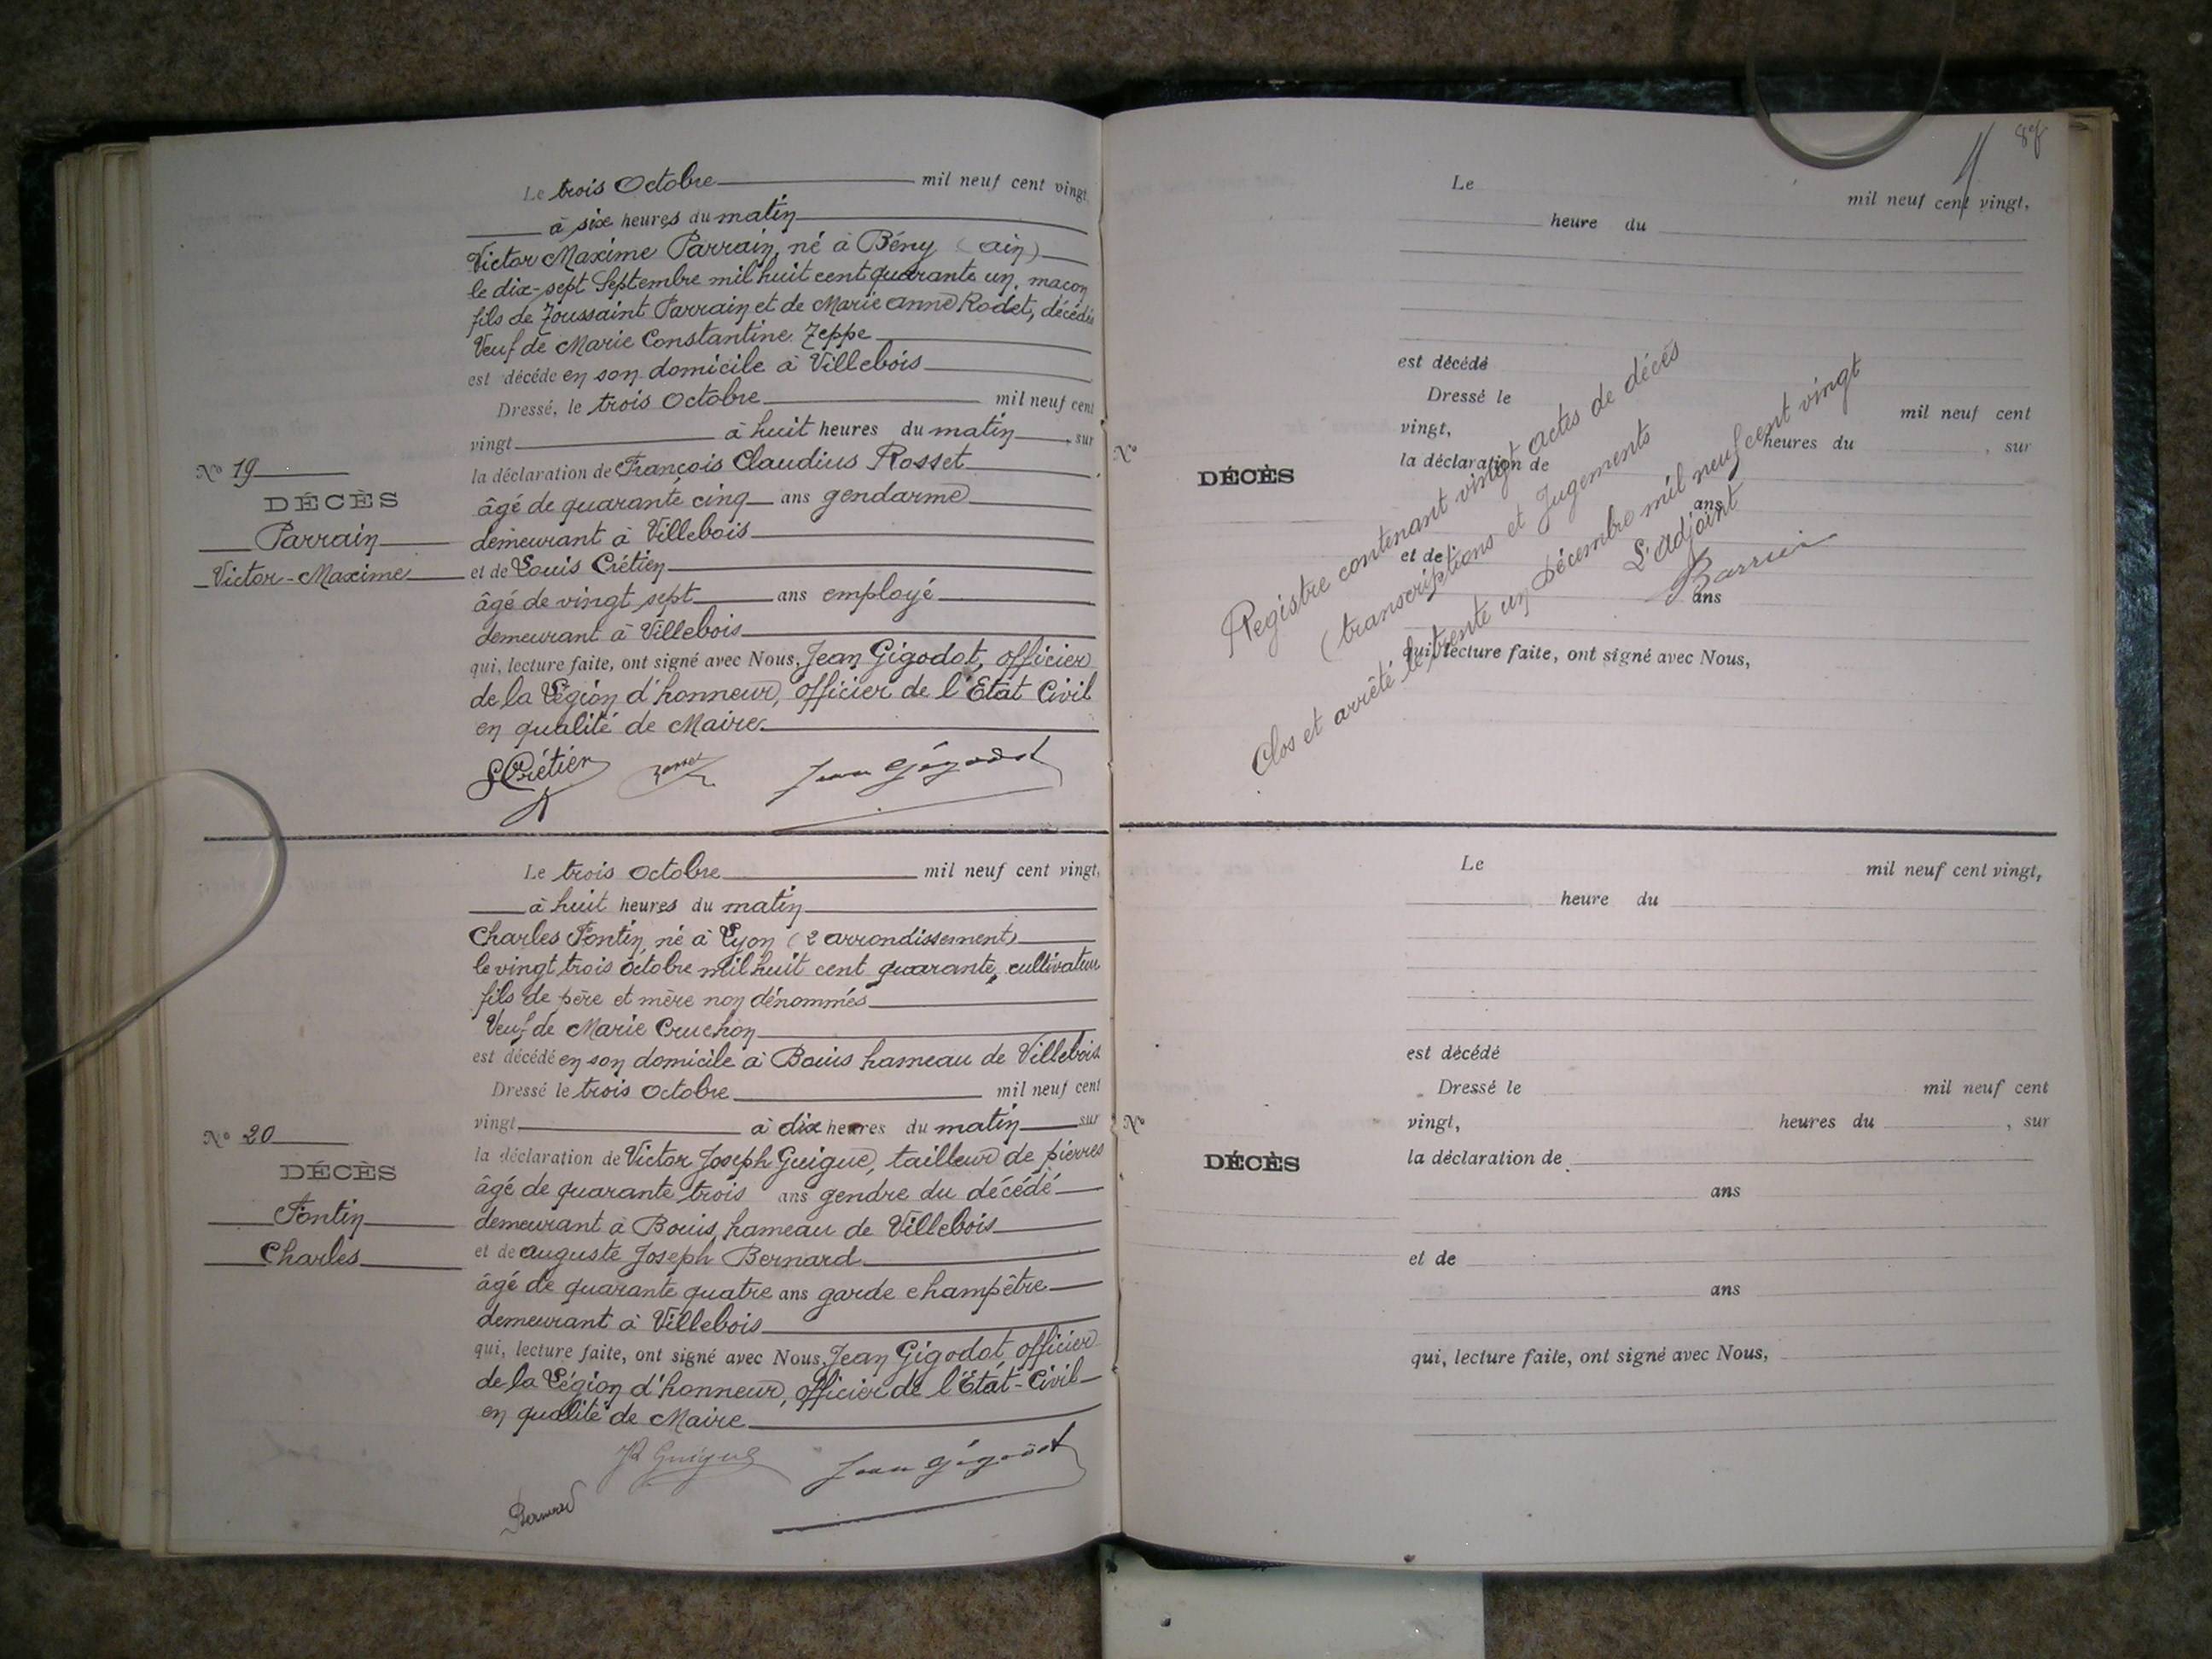 Le trois Octobre mil neuf cent vingt,
à six heures du matin
Victor Maxime Parrain, né à Bény (ain)
le dix-sept Septembre mil huit cent quarante un, maçon
fils de Toussaint Parrain et de Marie anne Rodet, décédés
Veuf de Marie Constantine Zeppe
est décédé en son domicile à Villebois
Dressé, le trois Octobre mil neuf cent
vingt à huit heures du matin, sur
la déclaration de François Claudius Rosset
âgé de quarante cinq ans gendarme
demeurant à Villebois
et de Louis Crétien
âgé de vingt sept ans employé
demeurant à Villebois
qui, lecture faite, ont signé avec Nous, Jean Gigodot, officier
de la Légion d'honneur, officier de l'Etat Civil
en qualité de Maire.
N° 19
DÉCÈS
Parrain
Victor-Maxime
L Crétien Jean Gigodot
Le trois octobre mil neuf cent vingt,
à huit heures du matin
Charles Fontin, né à Lyon (2 arrondissement)
le vingt trois octobre mil huit cent quarante, cultivateur
fils de père et mère non dénommés
Veuf de Marie Cruchon
est décédé en son domicile à Bouis hameau de Villebois
Dressé le trois octobre mil neuf cent
vingt à dix heures du matin sur
la déclaration de Victor Joseph Guigue, tailleur de pierres
âgé de quarante trois ans gendre du décédé
demeurant à Bouis, hameau de Villebois
et de auguste Joseph Bernard
âgé de quarante quatre ans garde champêtre
demeurant à Villebois
qui, lecture faite, ont signé avec Nous, Jean Gigodot officier
de la Légion d'honneur, officier de l'Etat-Civil
en qualité de Maire
N° 20
DÉCÈS
Fontin
Charles
Guigue Jean Gigodot
Bernard
Le mil neuf cent vingt,
heure du
est décédé
Dressé le mil neuf cent
vingt, heures du , sur
la déclaration de
ans
et de
ans
qui, lecture faite, ont signé avec Nous,
N°
DÉCÈS
Registre contenant vingt actes de décès
(transcriptions et Jugements
Clos et arrêté le trente un Décembre mil neuf cent vingt
L'adjoint
Le mil neuf cent vingt,
heure du
est décédé
Dressé le mil neuf cent
vingt, heures du , sur
la déclaration de
ans
et de
ans
qui, lecture faite, ont signé avec Nous,
N°
DÉCÈS